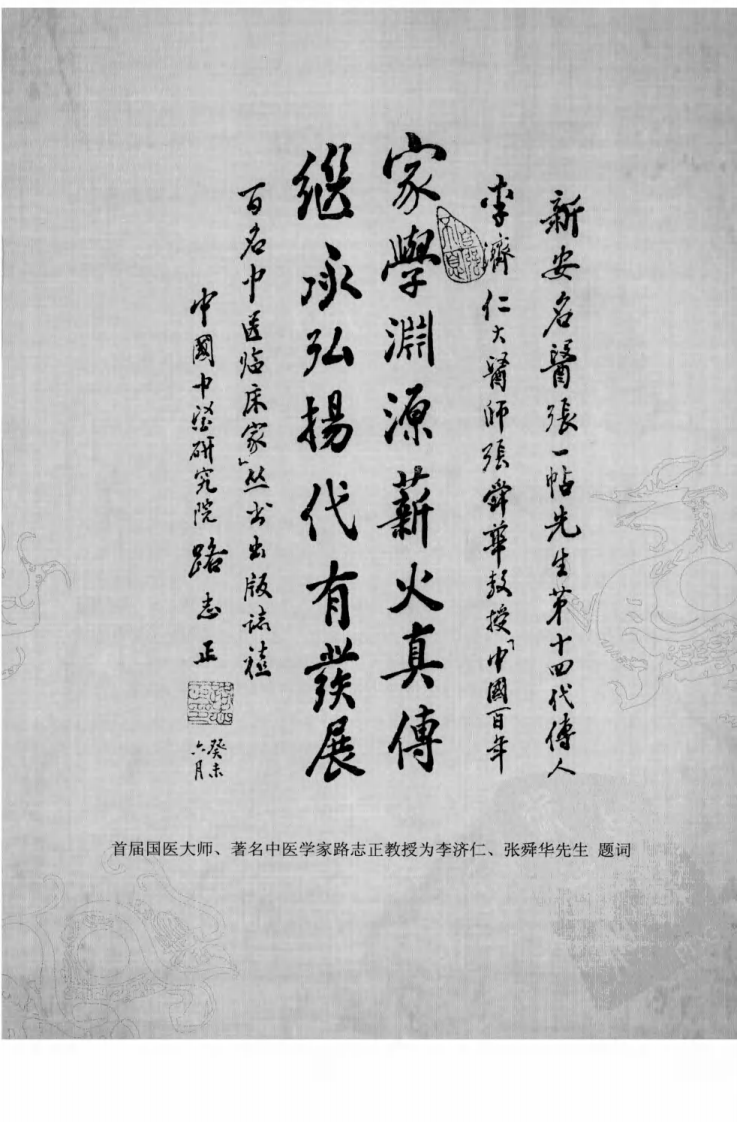 新安名醫張一帖先生第十四代傳人
李濟仁大醫師張舜華教授「中國百年
家學淵源薪火真傳
继承弘揚代有發展
百名中医临床家」丛书出版誌禧
中國中醫研究院 路志正
癸未
六月
首届国医大师、著名中医学家路志正教授为李济仁、张舜华先生 题词